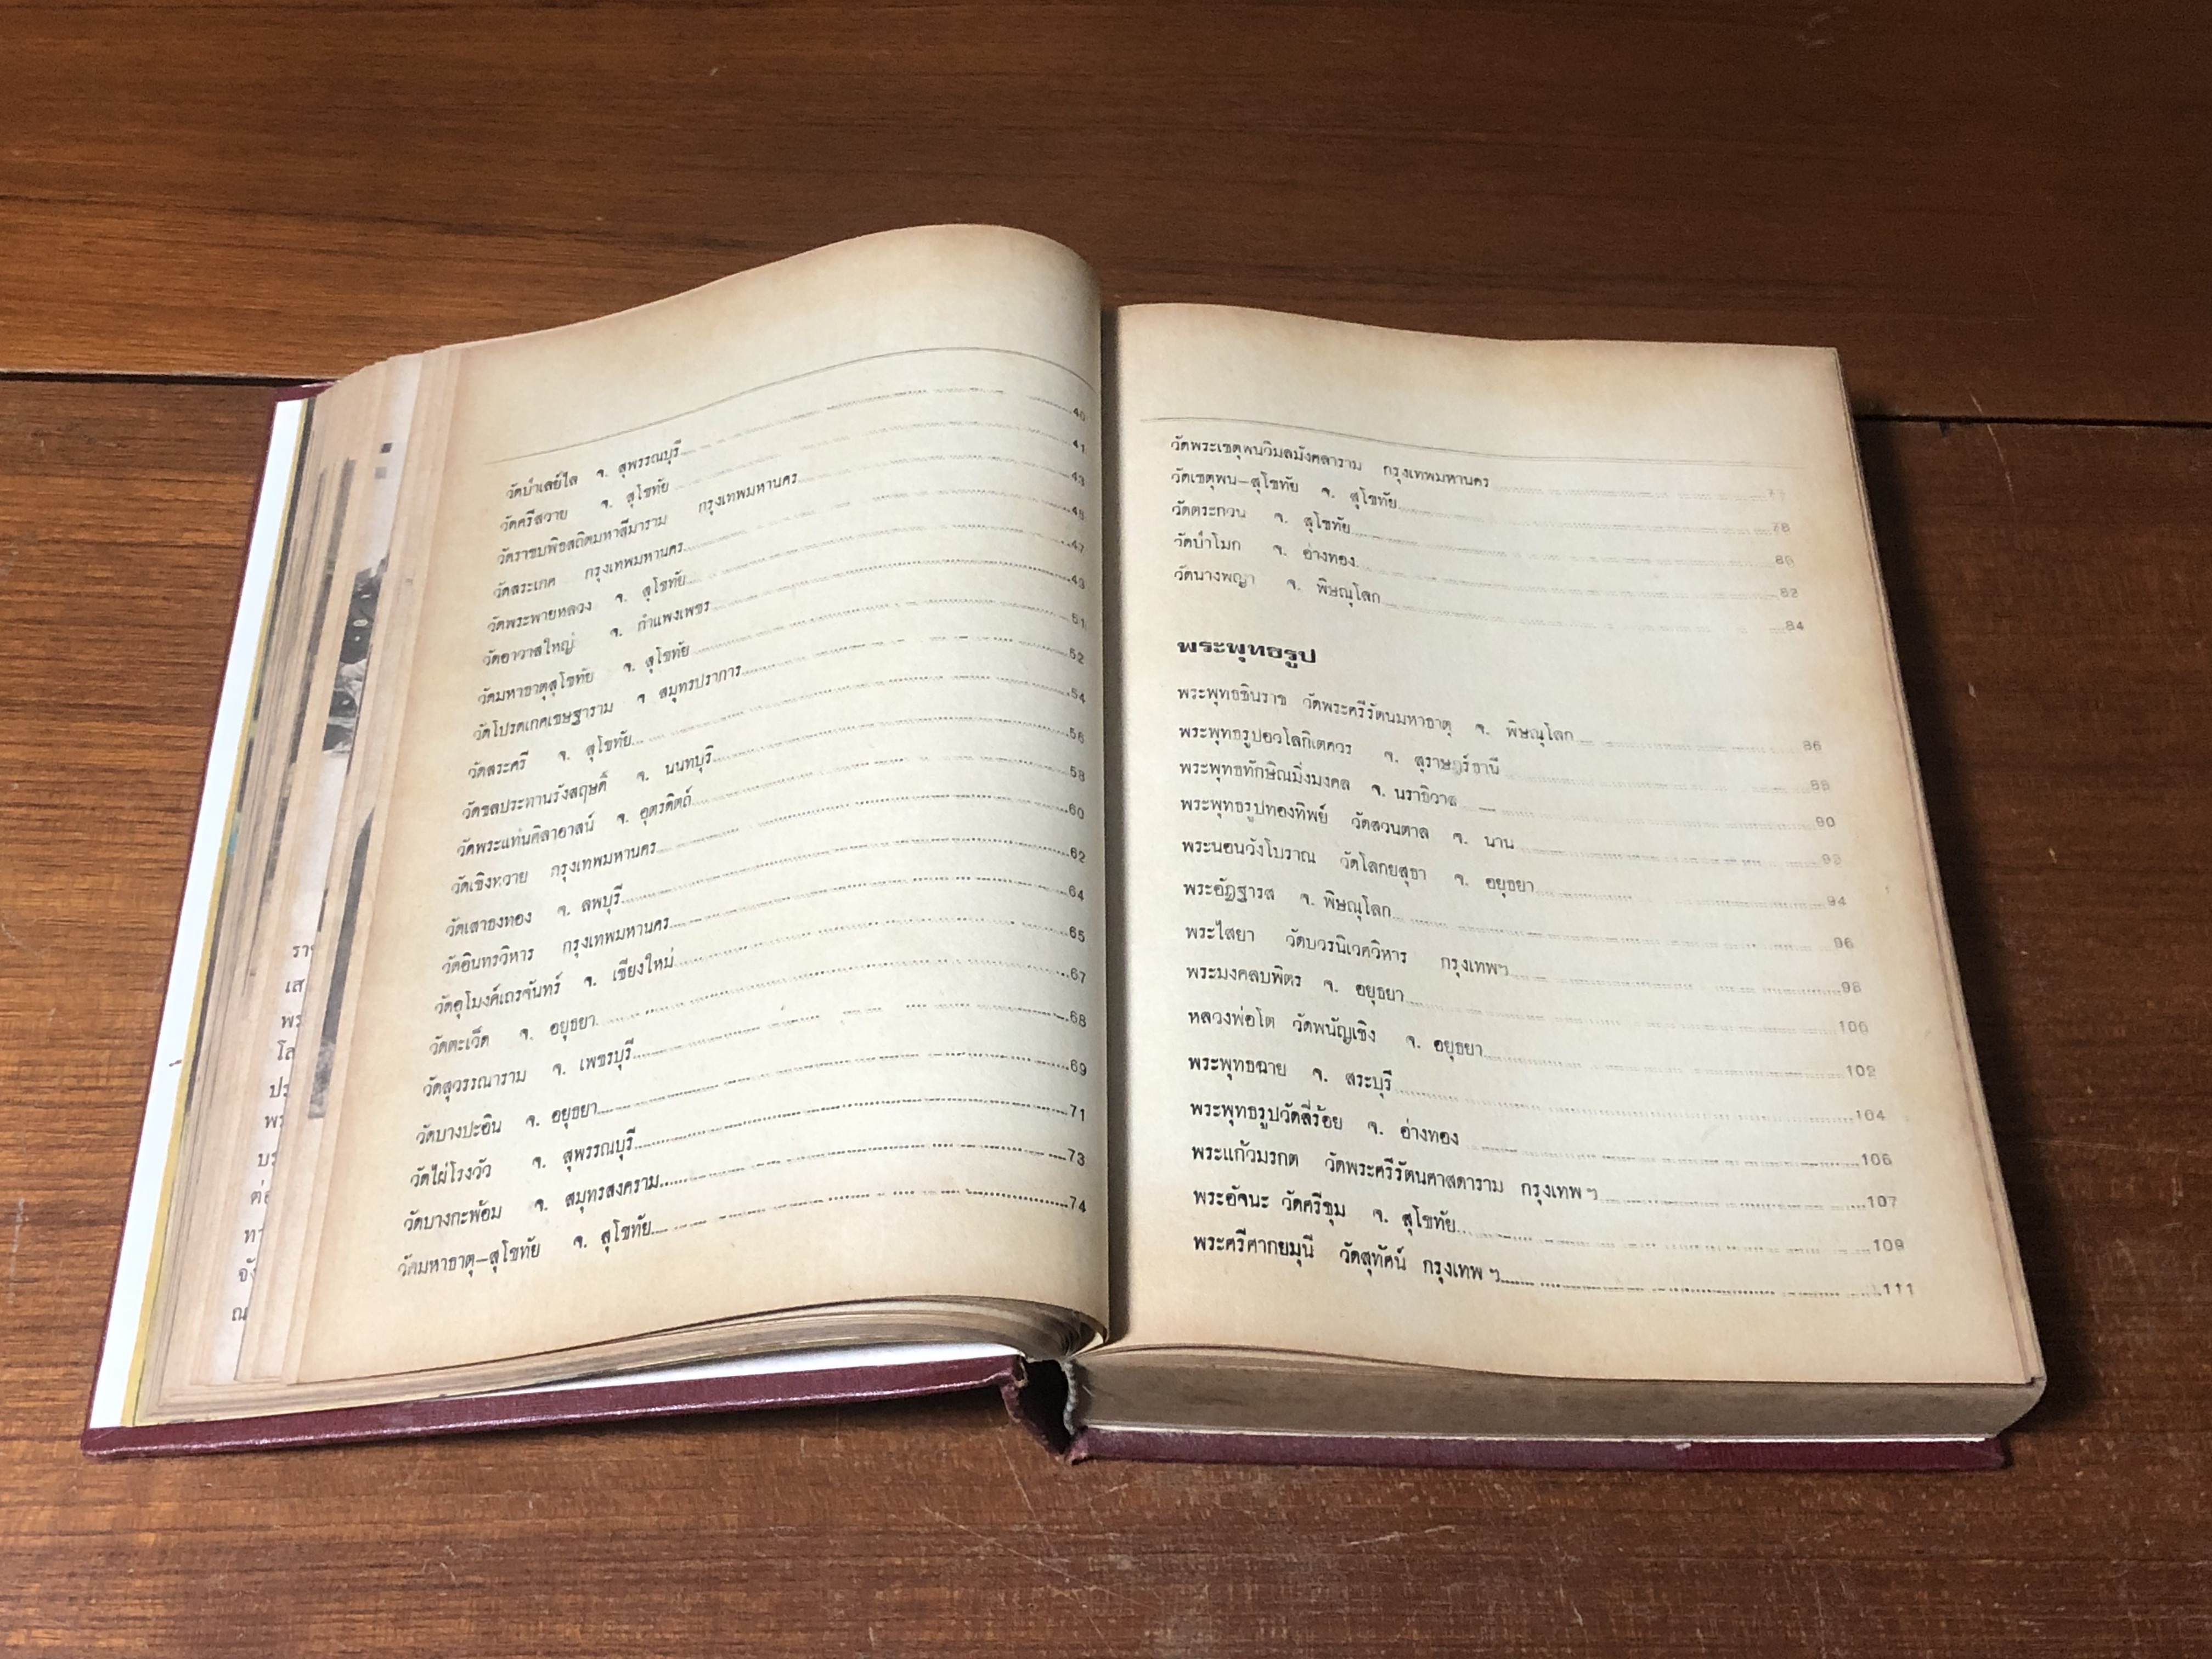 วัดป่าเลย์ไล จ. สุพรรณบุรี 40
วัดศรีสวาย จ. สุโขทัย 41
วัดราชบพิธสถิตมหาสีมาราม กรุงเทพมหานคร 43
วัดสระเกศ กรุงเทพมหานคร 45
วัดพระพายหลวง จ. สุโขทัย 47
วัดอาวาสใหญ่ จ. กำแพงเพชร
วัดมหาธาตุสุโขทัย จ. สุโขทัย 51
วัดโปรดเกศเชษฐาราม จ สมุทรปราการ 52
วัดสระศรี จ. สุโขทัย 54
วัดชลประทานรังสฤษดิ์ จ. นนทบุรี 56
วัดพระแท่นศิลาอาสน์ จ. อุตรดิตถ์ 58
วัดเชิงหวาย กรุงเทพมหานคร 60
วัดเสาธงทอง จ. ลพบุรี 62
วัดอินทรวิหาร กรุงเทพมหานคร 64
วัดอุโมงค์เถรจันทร์ จ. เชียงใหม่ 65
วัดตะเว็ด จ. อยุธยา 67
วัดสุวรรณาราม จ. เพชรบุรี 68
วัดบางปะอิน จ. อยุธยา 69
วัดไผ่โรงวัว จ. สุพรรณบุรี 71
วัดบางกะพ้อม จ. สมุทรสงคราม 73
วัดมหาธาตุ-สุโขทัย จ. สุโขทัย 74
วัดพระเชตุพนวิมลมังคลาราม กรุงเทพมหานคร
วัดเชตุพน-สุโขทัย จ. สุโขทัย 78
วัดตระกวน จ. สุโขทัย 80
วัดป่าโมก จ. อ่างทอง 82
วัดนางพญา จ. พิษณุโลก 84
พระพุทธรูป
พระพุทธชินราช วัดพระศรีรัตนมหาธาตุ จ. พิษณุโลก 86
พระพุทธรูปอวโลกิเตศวร จ. สุราษฎร์ธานี 88
พระพุทธทักษิณมิ่งมงคล จ. นราธิวาส 90
พระพุทธรูปทองทิพย์ วัดสวนตาล จ. น่าน
พระนอนวังโบราณ วัดโลกยสุธา จ. อยุธยา 94
พระอัฏฐารส จ. พิษณุโลก 96
พระไสยา วัดบวรนิเวศวิหาร กรุงเทพฯ 98
พระมงคลบพิตร จ. อยุธยา 100
หลวงพ่อโต วัดพนัญเชิง จ. อยุธยา 102
พระพุทธฉาย จ. สระบุรี 104
พระพุทธรูปวัดสี่ร้อย จ. อ่างทอง 106
พระแก้วมรกต วัดพระศรีรัตนศาสดาราม กรุงเทพฯ 107
พระอัจนะ วัดศรีชุม จ. สุโขทัย 109
พระศรีศากยมุนี วัดสุทัศน์ กรุงเทพฯ 111